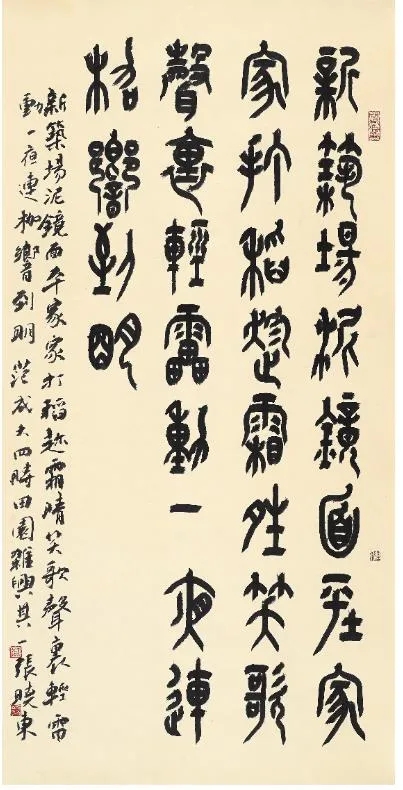 新築場泥鏡面平家
家打稻趁霜晴笑歌
聲裏輕雷動一夜連
枷響到明
新築場泥鏡面平家家打稻趁霜晴笑歌聲裏輕雷
動一夜連枷響到明 范成大四時田園雜興其一張曉東